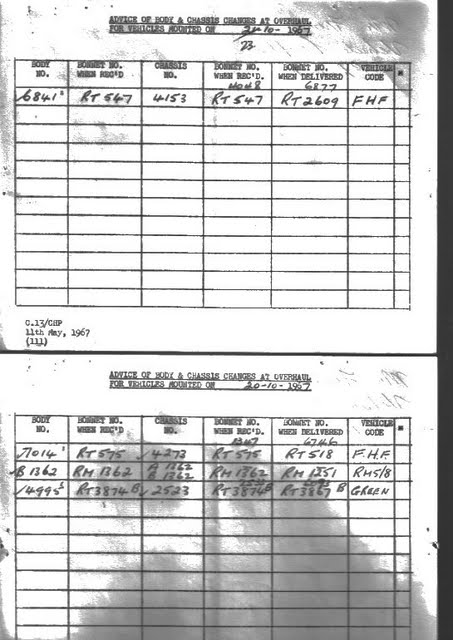 ADVICE OF BODY & CHASSIS CHANGES AT OVERHAUL
FOR VEHICLES MOUNTED ON 24-10-1967
23
BODY NO. BONNET NO. WHEN REC'D CHASSIS NO. BONNET NO. WHEN REC'D. BONNET NO. WHEN DELIVERED VEHICLE CODE *
4048 6877
6841 RT 547 4153 RT 547 RT 2609 FHF
C.13/CHP
11th May, 1967
(111)
ADVICE OF BODY & CHASSIS CHANGES AT OVERHAUL
FOR VEHICLES MOUNTED ON 20-10-1967
BODY NO. BONNET NO. WHEN REC'D CHASSIS NO. BONNET NO. WHEN REC'D. BONNET NO. WHEN DELIVERED VEHICLE CODE *
1347 6746
7014 RT 575 4273 RT 575 RT 518 F.H.F
B 1362 RM 1362 A 1362 B 1362 RM 1362 RM 1251 RM5/8
4995 RT3874 B 2523 RT3874 B RT 3867 B GREEN